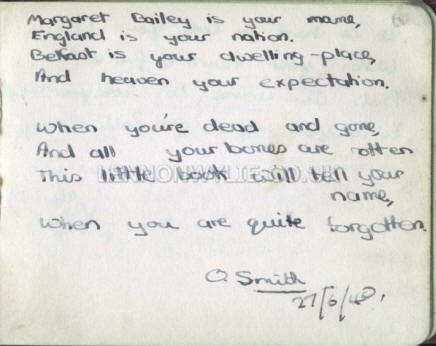 Margaret Bailey is your name,
England is your nation.
Belfast is your dwelling-place,
And heaven your expectation.
When you're dead and gone,
And all your bones are rotten
This little book will tell your
name,
When you are quite forgotten.
O. Smith
27/6/48.